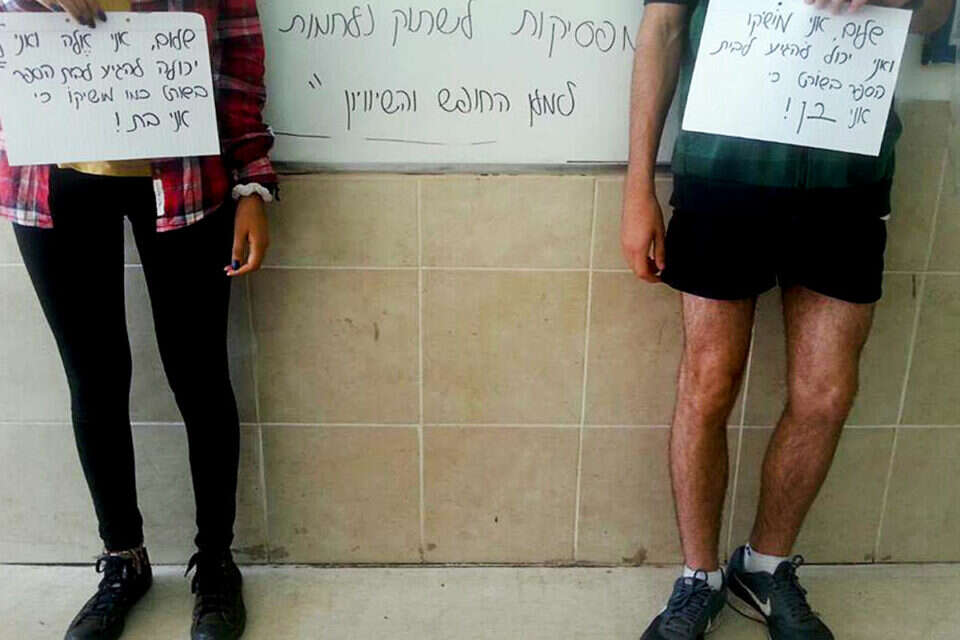 מפסיקות לשתוק נלחמות
למען החופש והשיוויון"
שלום, אני מושקו
ואני יכול להגיע לבית
הספר בשורט כי
אני בן!
שלום, אני אלה ואני
יכולה להגיע לבית הספר
בשורט כמו משיקו כי
אני בת!